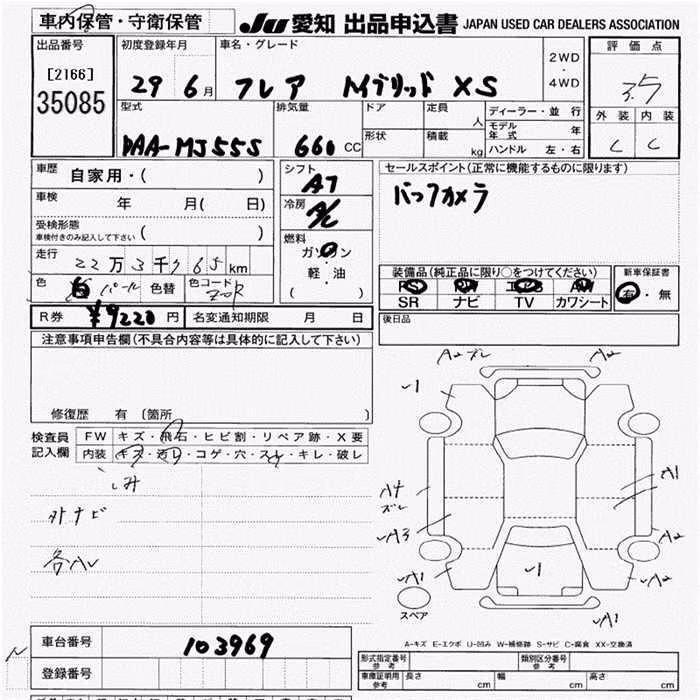 車内保管・守衛保管 JU 愛知 出品申込書 JAPAN USED CAR DEALERS ASSOCIATION
出品番号 初度登録年月 車名・グレード 2WD・4WD 評価点
[2166] 35085 29 6月 フレア Mブリッド XS 3.5
型式 排気量 ドア 定員 人 ディーラー・並行 外装 内装
モデル年式 年
DAA-MJ55S 660 CC 形状 積載 kg ハンドル 左・右 C C
車歴 自家用・( ) シフト AT セールスポイント(正常に機能するものに限ります)
車検 年 月( 日) 冷房 A/C バックカメラ
受検形態 車検付きのみ記入して下さい ( )
燃料 ガソリン
走行 22万3千 65 km 軽・油
( )
装備品(純正品に限り○をつけてください) 新車保証書
色 パール 色替 色コード PS PW エアB AW 有・無
SR ナビ TV カワシート
R券 ¥9220円 名変通知期限 月 日 後日品
注意事項申告欄(不具合内容等は具体的に記入して下さい)
修復歴 有 〔箇所 〕
検査員記入欄 FW キズ・飛石・ヒビ割・リペア跡・X要
内装 キズ・汚レ・コゲ・穴・スレ・キレ・破レ
しみ
外ナビ
各AV
A2 ズレ A2
✓1
A4 ズレ A1
✓A3 A2
✓A1 ✓1 ✓A2
✓A1
スペア
A-キズ E-エクボ U-凹み W-補修跡 S-サビ C-腐食 XX-交換済
車台番号 103969
登録番号
形式指定番号 参考 類別区分番号 参考
車庫証明用 参考 長さ cm 幅 cm 高さ cm